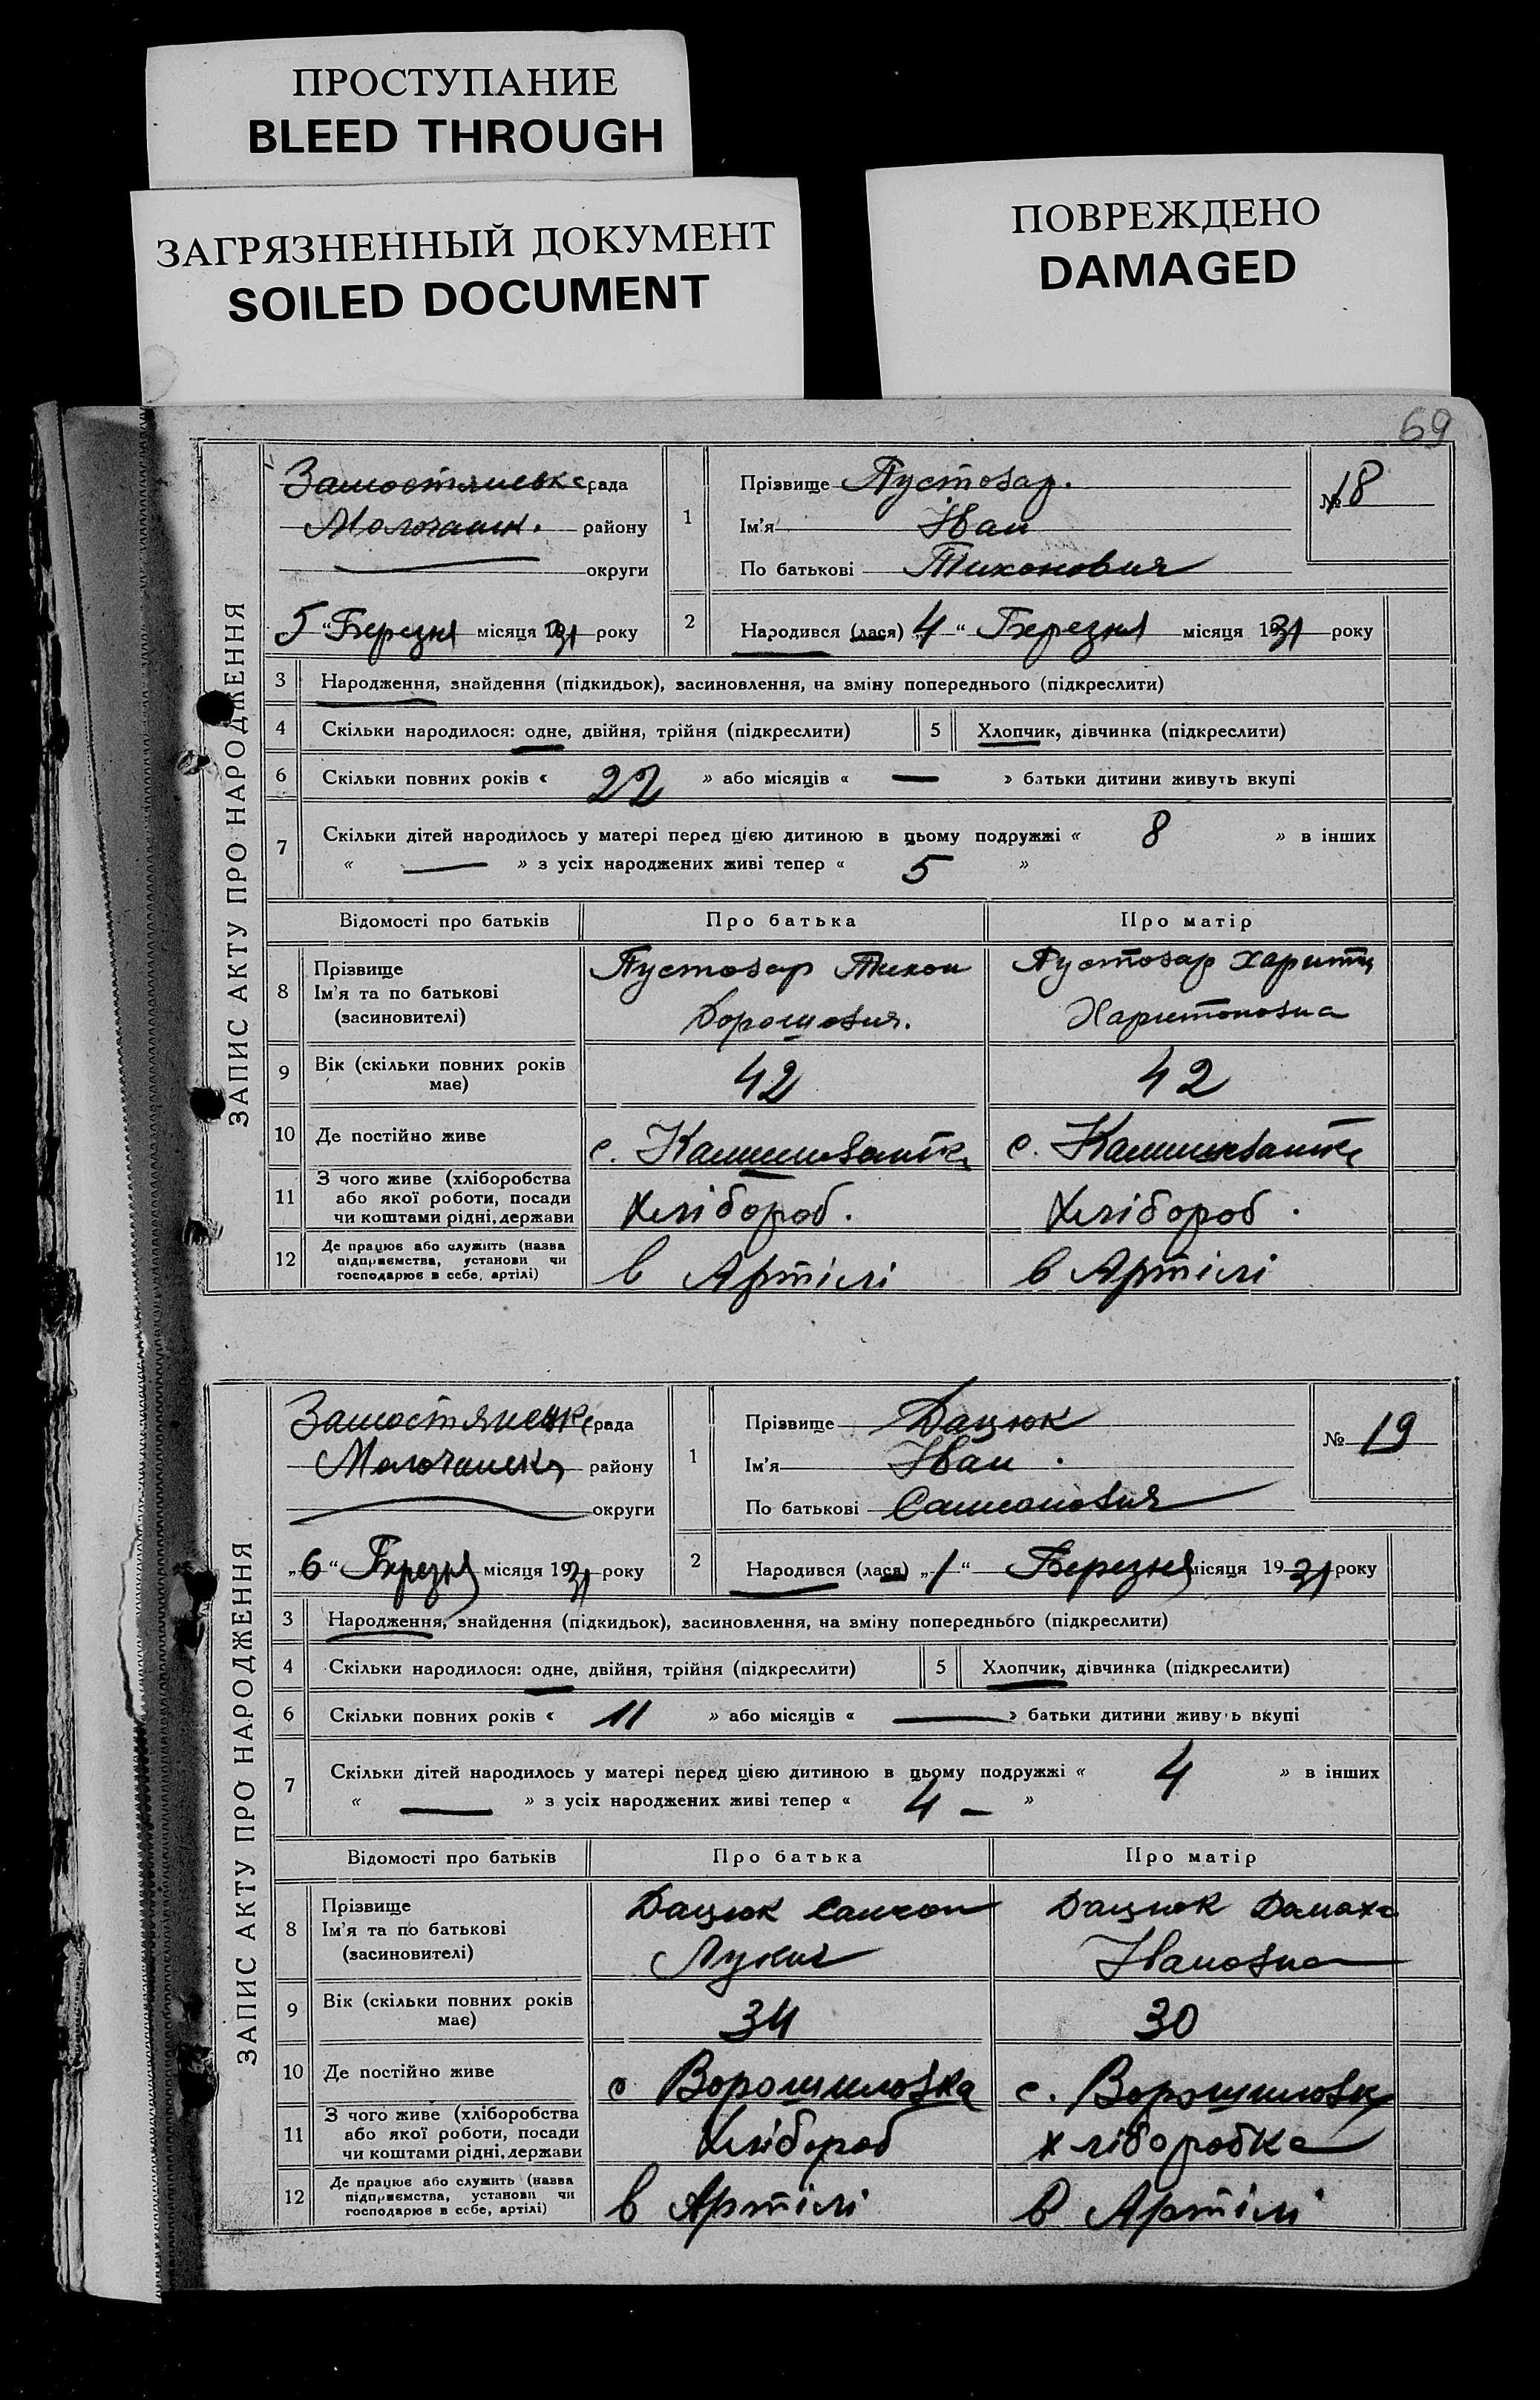 ПРОСТУПАНИЕ
BLEED THROUGH
ЗАГРЯЗНЕННЫЙ ДОКУМЕНТ
SOILED DOCUMENT
ПОВРЕЖДЕНО
DAMAGED
69
ЗАПИС АКТУ ПРО НАРОДЖЕННЯ
Замостянськ рада
Молочанськ. району
округи
5 “ Березня місяця 1931 року
1
Прізвище Пустовар.
Ім'я Іван
По батькові Тихонович
№ 18
2
Народився (лася) „4“ Березня місяця 1931 року
3 Народження, знайдення (підкидьок), засиновлення, на зміну попереднього (підкреслити)
4 Скільки народилося: одне, двійня, трійня (підкреслити) 5 Хлопчик, дівчинка (підкреслити)
6 Скільки повних років « 22 » або місяців « — » батьки дитини живуть вкупі
7 Скільки дітей народилось у матері перед цією дитиною в цьому подружжі « 8 » в інших
« — » з усіх народжених живі тепер « 5 »
Відомості про батьків Про батька Про матір
8 Прізвище
Ім'я та по батькові
(засиновителі)
Пустовар Тихон
Дорошович.
Пустовар
Харитоновна
9 Вік (скільки повних років
має)
42 42
10 Де постійно живе с. с.
11 З чого живе (хліборобства
або якої роботи, посади
чи коштами рідні, держави
Хлібороб. Хлібороб.
12 Де працює або служить (назва
підприємства, установи чи
господарює в себе, артілі)
в Артілі в Артілі
ЗАПИС АКТУ ПРО НАРОДЖЕННЯ
Замостянськ рада
Молочанськ району
округи
„6“ Березня місяця 1931 року
1
Прізвище Дацюк
Ім'я Іван.
По батькові Самсонович
№ 19
2
Народився (лася) „1“ Березня місяця 1931 року
3 Народження, знайдення (підкидьок), засиновлення, на зміну попереднього (підкреслити)
4 Скільки народилося: одне, двійня, трійня (підкреслити) 5 Хлопчик, дівчинка (підкреслити)
6 Скільки повних років « 11 » або місяців « — » батьки дитини живуть вкупі
7 Скільки дітей народилось у матері перед цією дитиною в цьому подружжі « 4 » в інших
« — » з усіх народжених живі тепер « 4 — »
Відомості про батьків Про батька Про матір
8 Прізвище
Ім'я та по батькові
(засиновителі)
Дацюк Самсон
Лукич
Дацюк Домаха
Івановна
9 Вік (скільки повних років
має)
34 30
10 Де постійно живе с. Ворошиловка с. Ворошиловк
11 З чого живе (хліборобства
або якої роботи, посади
чи коштами рідні, держави
Хлібороб хліборобка
12 Де працює або служить (назва
підприємства, установи чи
господарює в себе, артілі)
в Артілі в Артілі